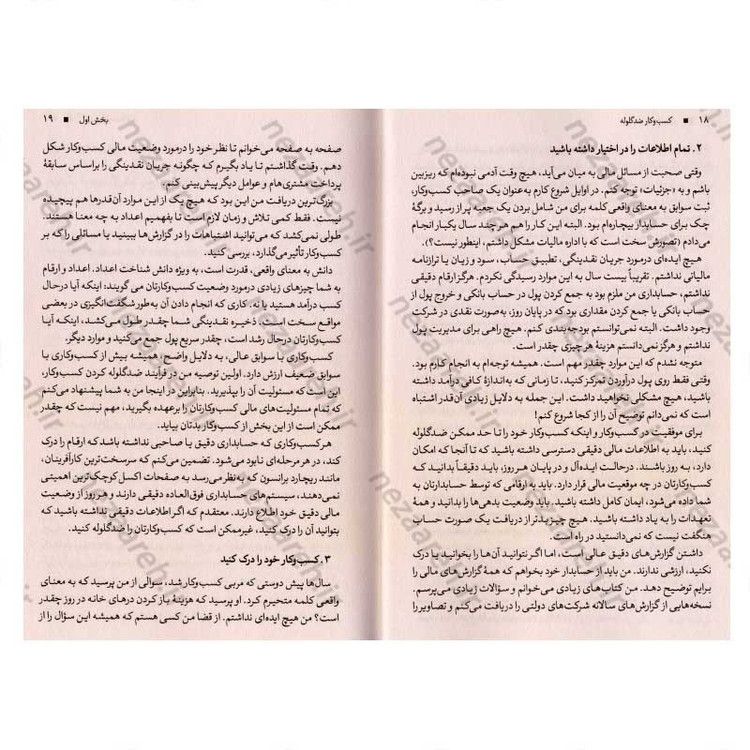 ۱۸ ■ کسب‌وکار ضدگلوله
۲. تمام اطلاعات را در اختیار داشته باشید
وقتی صحبت از مسائل مالی به میان می‌آید، هیچ وقت آدمی نبوده‌ام که ریزبین
باشم و به «جزئیات» توجه کنم. در اوایل شروع کارم به‌عنوان یک صاحب کسب‌وکار،
ثبت سوابق به معنای واقعی کلمه برای من شامل بردن یک جعبه پر از رسید و برگهٔ
چک برای حسابدار بیچاره‌ام بود. البته این کار را هم هر چند سال یکبار انجام
می‌دادم (تصورش سخت است که با اداره مالیات مشکل داشتم، اینطور نیست؟).
هیچ ایده‌ای درمورد جریان نقدینگی، تطبیق حساب، سود و زیان یا ترازنامه
مالیاتی نداشتم. تقریباً بیست سال به این موارد رسیدگی نکردم. هرگز ارقام دقیقی
نداشتم، حسابداری من ملزم بود به جمع کردن پول در حساب بانکی و خروج پول از
حساب بانکی یا جمع کردن مقداری بود که در پایان روز، به‌صورت نقدی در شرکت
وجود داشت. البته نمی‌توانستم بودجه‌بندی کنم. هیچ راهی برای مدیریت پول
نداشتم و هرگز نمی‌دانستم هزینهٔ هر چیزی چقدر است.
متوجه نشدم که این موارد چقدر مهم است. همیشه توجه‌ام به انجام کارم بود.
وقتی فقط روی پول درآوردن تمرکز کنید، تا زمانی که به‌اندازهٔ کافی درآمد داشته
باشید، هیچ مشکلی نخواهید داشت. این جمله به دلایل زیادی آن‌قدر اشتباه
است که نمی‌دانم توضیح آن را از کجا شروع کنم!
برای موفقیت در کسب‌وکار و اینکه کسب‌وکار خود را تا حد ممکن ضدگلوله
کنید، باید به اطلاعات مالی دقیقی دسترسی داشته باشید که تا آنجا که امکان
دارد، به روز باشند. درحالت ایده‌آل و در پایان هر روز، باید دقیقاً بدانید که
کسب‌وکارتان در چه موقعیت مالی قرار دارد. باید به ارقامی که توسط حسابدارتان به
شما داده می‌شود، ایمان کامل داشته باشید. باید وضعیت بدهی‌ها را بدانید و همهٔ
تعهدات را به یاد داشته باشید. هیچ چیز بدتر از دریافت یک صورت حساب
هنگفت نیست که نمی‌دانستید در راه است.
داشتن گزارش‌های دقیق عالی است، اما اگر نتوانید آن‌ها را بخوانید یا درک
کنید، ارزشی ندارند. من باید از حسابدار خود بخواهم که همهٔ گزارش‌های مالی را
برایم توضیح دهد. من کتاب‌های زیادی می‌خوانم و سؤالات زیادی می‌پرسم.
نسخه‌هایی از گزارش‌های سالانه شرکت‌های دولتی را دریافت می‌کنم و تصاویر را
بخش اول ■ ۱۹
صفحه به صفحه می‌خوانم تا نظر خود را درمورد وضعیت مالی کسب‌وکار شکل
دهم. وقت گذاشتم تا یاد بگیرم که چگونه جریان نقدینگی را براساس سابقهٔ
پرداخت مشتری‌هام و عوامل دیگر پیش‌بینی کنم.
بزرگ‌ترین دریافت من این بود که هیچ یک از این موارد آن‌قدرها هم پیچیده
نیست. فقط کمی تلاش و زمان لازم است تا بفهمیم اعداد به چه معنا هستند.
طولی نمی‌کشد که می‌توانید اشتباهات را در گزارش‌ها ببینید یا مسائلی را که بر
کسب‌وکارتان تأثیر می‌گذارد، بررسی کنید.
دانش به معنای واقعی، قدرت است، به ویژه دانش شناخت اعداد. اعداد و ارقام
به شما چیزهای زیادی درمورد وضعیت کسب‌وکارتان می‌گویند: اینکه آیا درحال
کسب درآمد هستید یا نه. کاری که انجام دادن آن به‌طور شگفت‌انگیزی در بعضی
مواقع سخت است. ذخیره نقدینگی شما چقدر طول می‌کشد، اینکه آیا
کسب‌وکارتان درحال رشد است، سریع پول جمع می‌کنید و موارد دیگر.
کسب‌وکاری با سوابق عالی، به دلایل واضح، همیشه بیش از کسب‌وکاری با
سوابق ضعیف ارزش دارد. اولین توصیه من در فرآیند ضدگلوله کردن کسب‌وکار،
این است که مسئولیت آن را بپذیرید. بنابراین در اینجا من به شما پیشنهاد می‌کنم
که تمام مسئولیت‌های مالی کسب‌وکارتان را برعهده بگیرید، مهم نیست که چقدر
ممکن است از این بخش از کسب‌وکار بدتان بیاید.
هر کسب‌وکاری که حسابداری دقیق یا صاحبی نداشته باشد که ارقام را درک
کند، در هر مرحله‌ای نابود می‌شود. تضمین می‌کنم که سرسخت‌ترین کارآفرینان،
مانند ریچارد برانسون که به‌نظر می‌رسد به صفحات اکسل کوچک‌ترین اهمیتی
نمی‌دهند، سیستم‌های حسابداری فوق‌العاده دقیقی دارند و هر روز از وضعیت
مالی دقیق خود اطلاع دارند. معتقدم که اگر اطلاعات دقیقی نداشته باشید که
بتوانید آن را درک کنید، غیرممکن است که کسب‌وکارتان را ضدگلوله کنید.
۳. کسب‌وکار خود را درک کنید
سال‌ها پیش دوستی که مربی کسب‌وکار شد، سوالی از من پرسید که به معنای
واقعی کلمه متحیرم کرد. او پرسید که هزینهٔ باز کردن درهای خانه در روز چقدر
است؟ من هیچ ایده‌ای نداشتم. از قضا من کسی هستم که همیشه این سؤال را از
nezaareh.ir